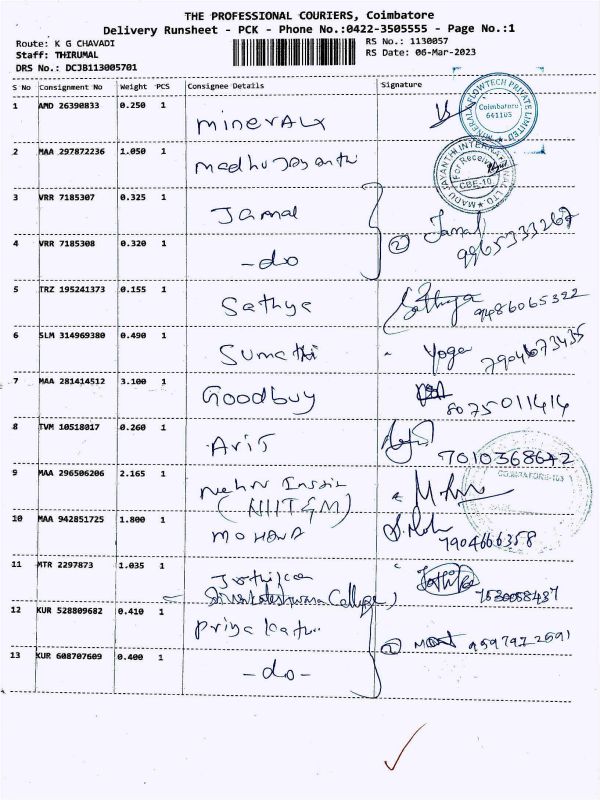 THE PROFESSIONAL COURIERS, Coimbatore
Delivery Runsheet - PCK - Phone No.:0422-3505555 - Page No.:1
Route: K G CHAVADI
RS No.: 1130057
Staff: THIRUMAL
RS Date: 06-Mar-2023
DRS No.: DCJB113005701
S No Consignment No Weight PCS Consignee Details Signature
1 AMD 26390833 0.250 1 minerals
MINERAL FLOWTECH PRIVATE LIMITED Coimbatore 641105
2 MAA 297872236 1.050 1 madhu Jayanthi
MADU JAYANTHI INTERNATIONAL LTD. For Receive CBE-10
3 VRR 7185307 0.325 1 Jamal
② Jamal 9965333267
4 VRR 7185308 0.320 1 -do
5 TRZ 195241373 0.155 1 Sathya Sathya 9486065322
6 SLM 314969380 0.490 1 Sumathi Yoga 7904673435
7 MAA 281414512 3.100 1 Goodbuy 8075011414
8 TVM 10518017 0.260 1 Arif 7010368642
9 MAA 296506206 2.165 1 Nehru
(NIITEM)
COIMBATORE-105
10 MAA 942851725 1.800 1 MOHANA S. Moh 7904666358
11 MTR 2297873 1.035 1 7530058437
College)
12 KUR 528809682 0.410 1 Priya
② 9597972591
13 KUR 608707609 0.400 1 -do-